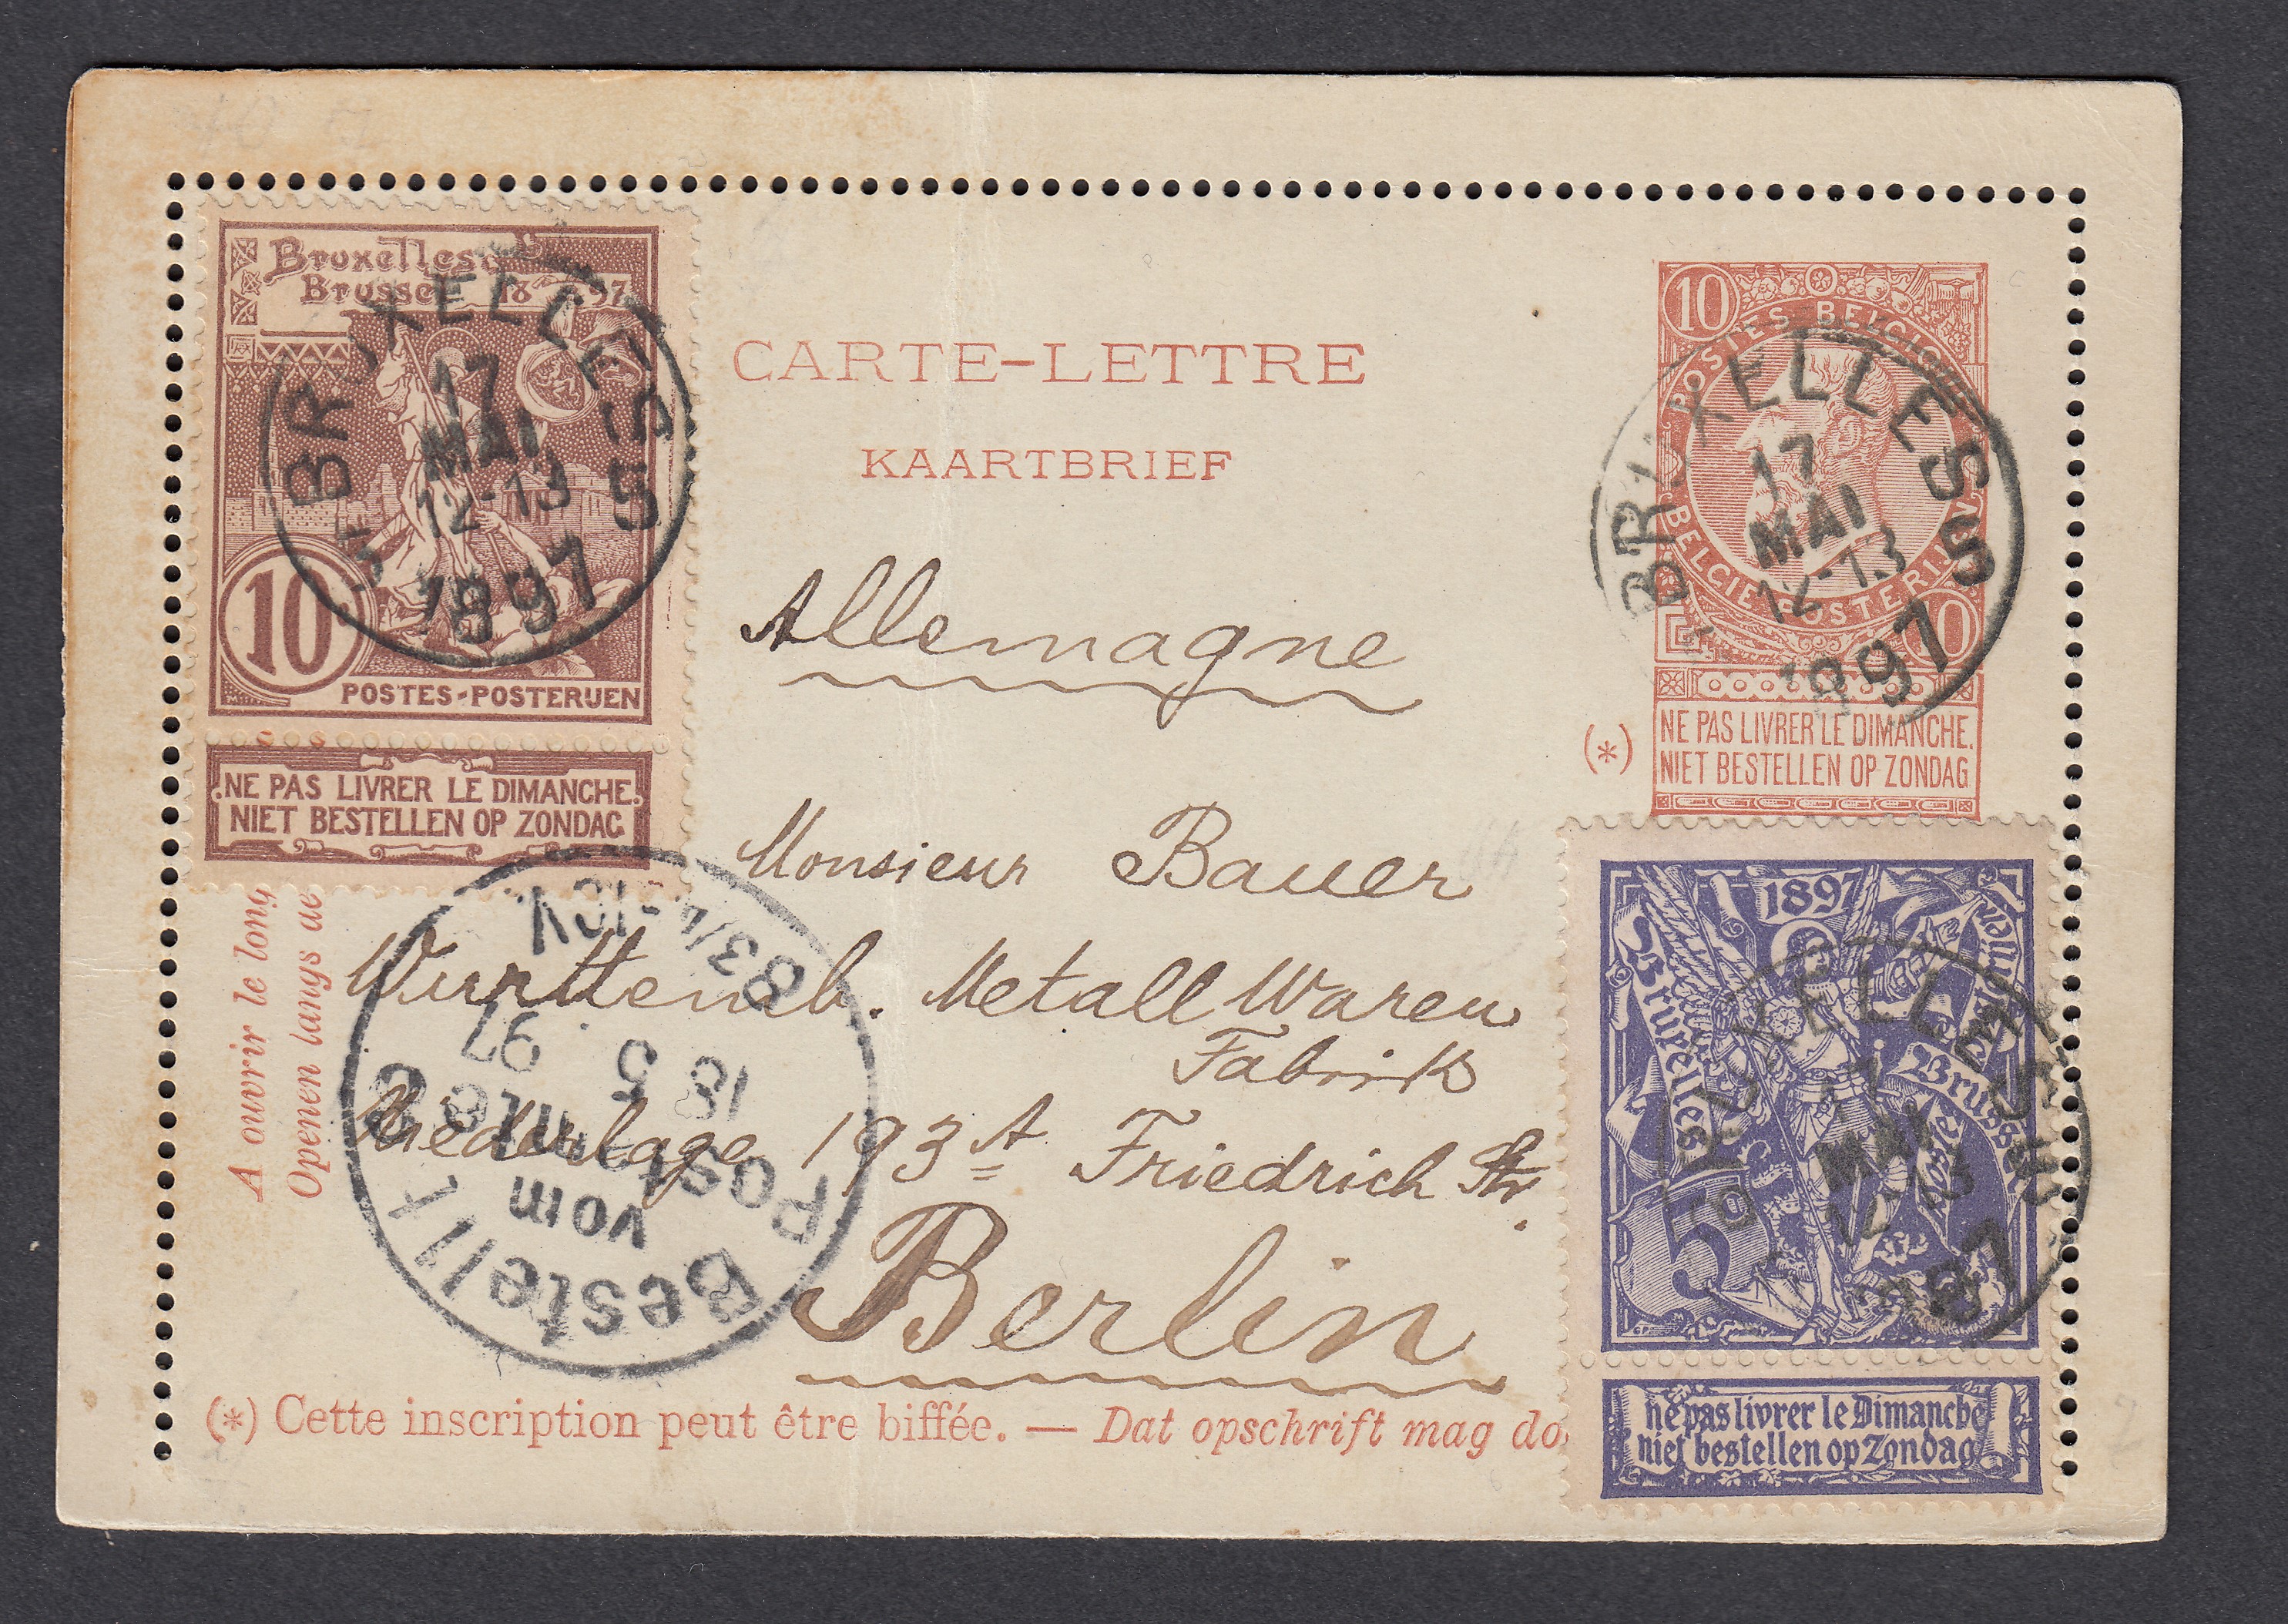 Bruxelles
Brussel 1897
BRUXELLES 5
17
MAI
12-13
1897
10
POSTES-POSTERIJEN
NE PAS LIVRER LE DIMANCHE.
NIET BESTELLEN OP ZONDAG
CARTE-LETTRE
KAARTBRIEF
10
POSTES BELGIQUE
BELGIE POSTERIJEN
10
BRUXELLES 5
17
MAI
12-13
1897
(*)
NE PAS LIVRER LE DIMANCHE.
NIET BESTELLEN OP ZONDAG
Allemagne
Monsieur Bauer
Württemb. Metall Waren
Fabrik
Niederlage 193 A Friedrich Str.
Berlin
A ouvrir le long
Openen langs de
Bestellt
vom
Postamte 8
18 5 97
8 3/4-10V.
1897
Bruxelles
Brussel
Postes
5
BRUXELLES
17
MAI
1897
ne pas livrer le Dimanche
niet bestellen op Zondag
(*) Cette inscription peut être biffée. — Dat opschrift mag do